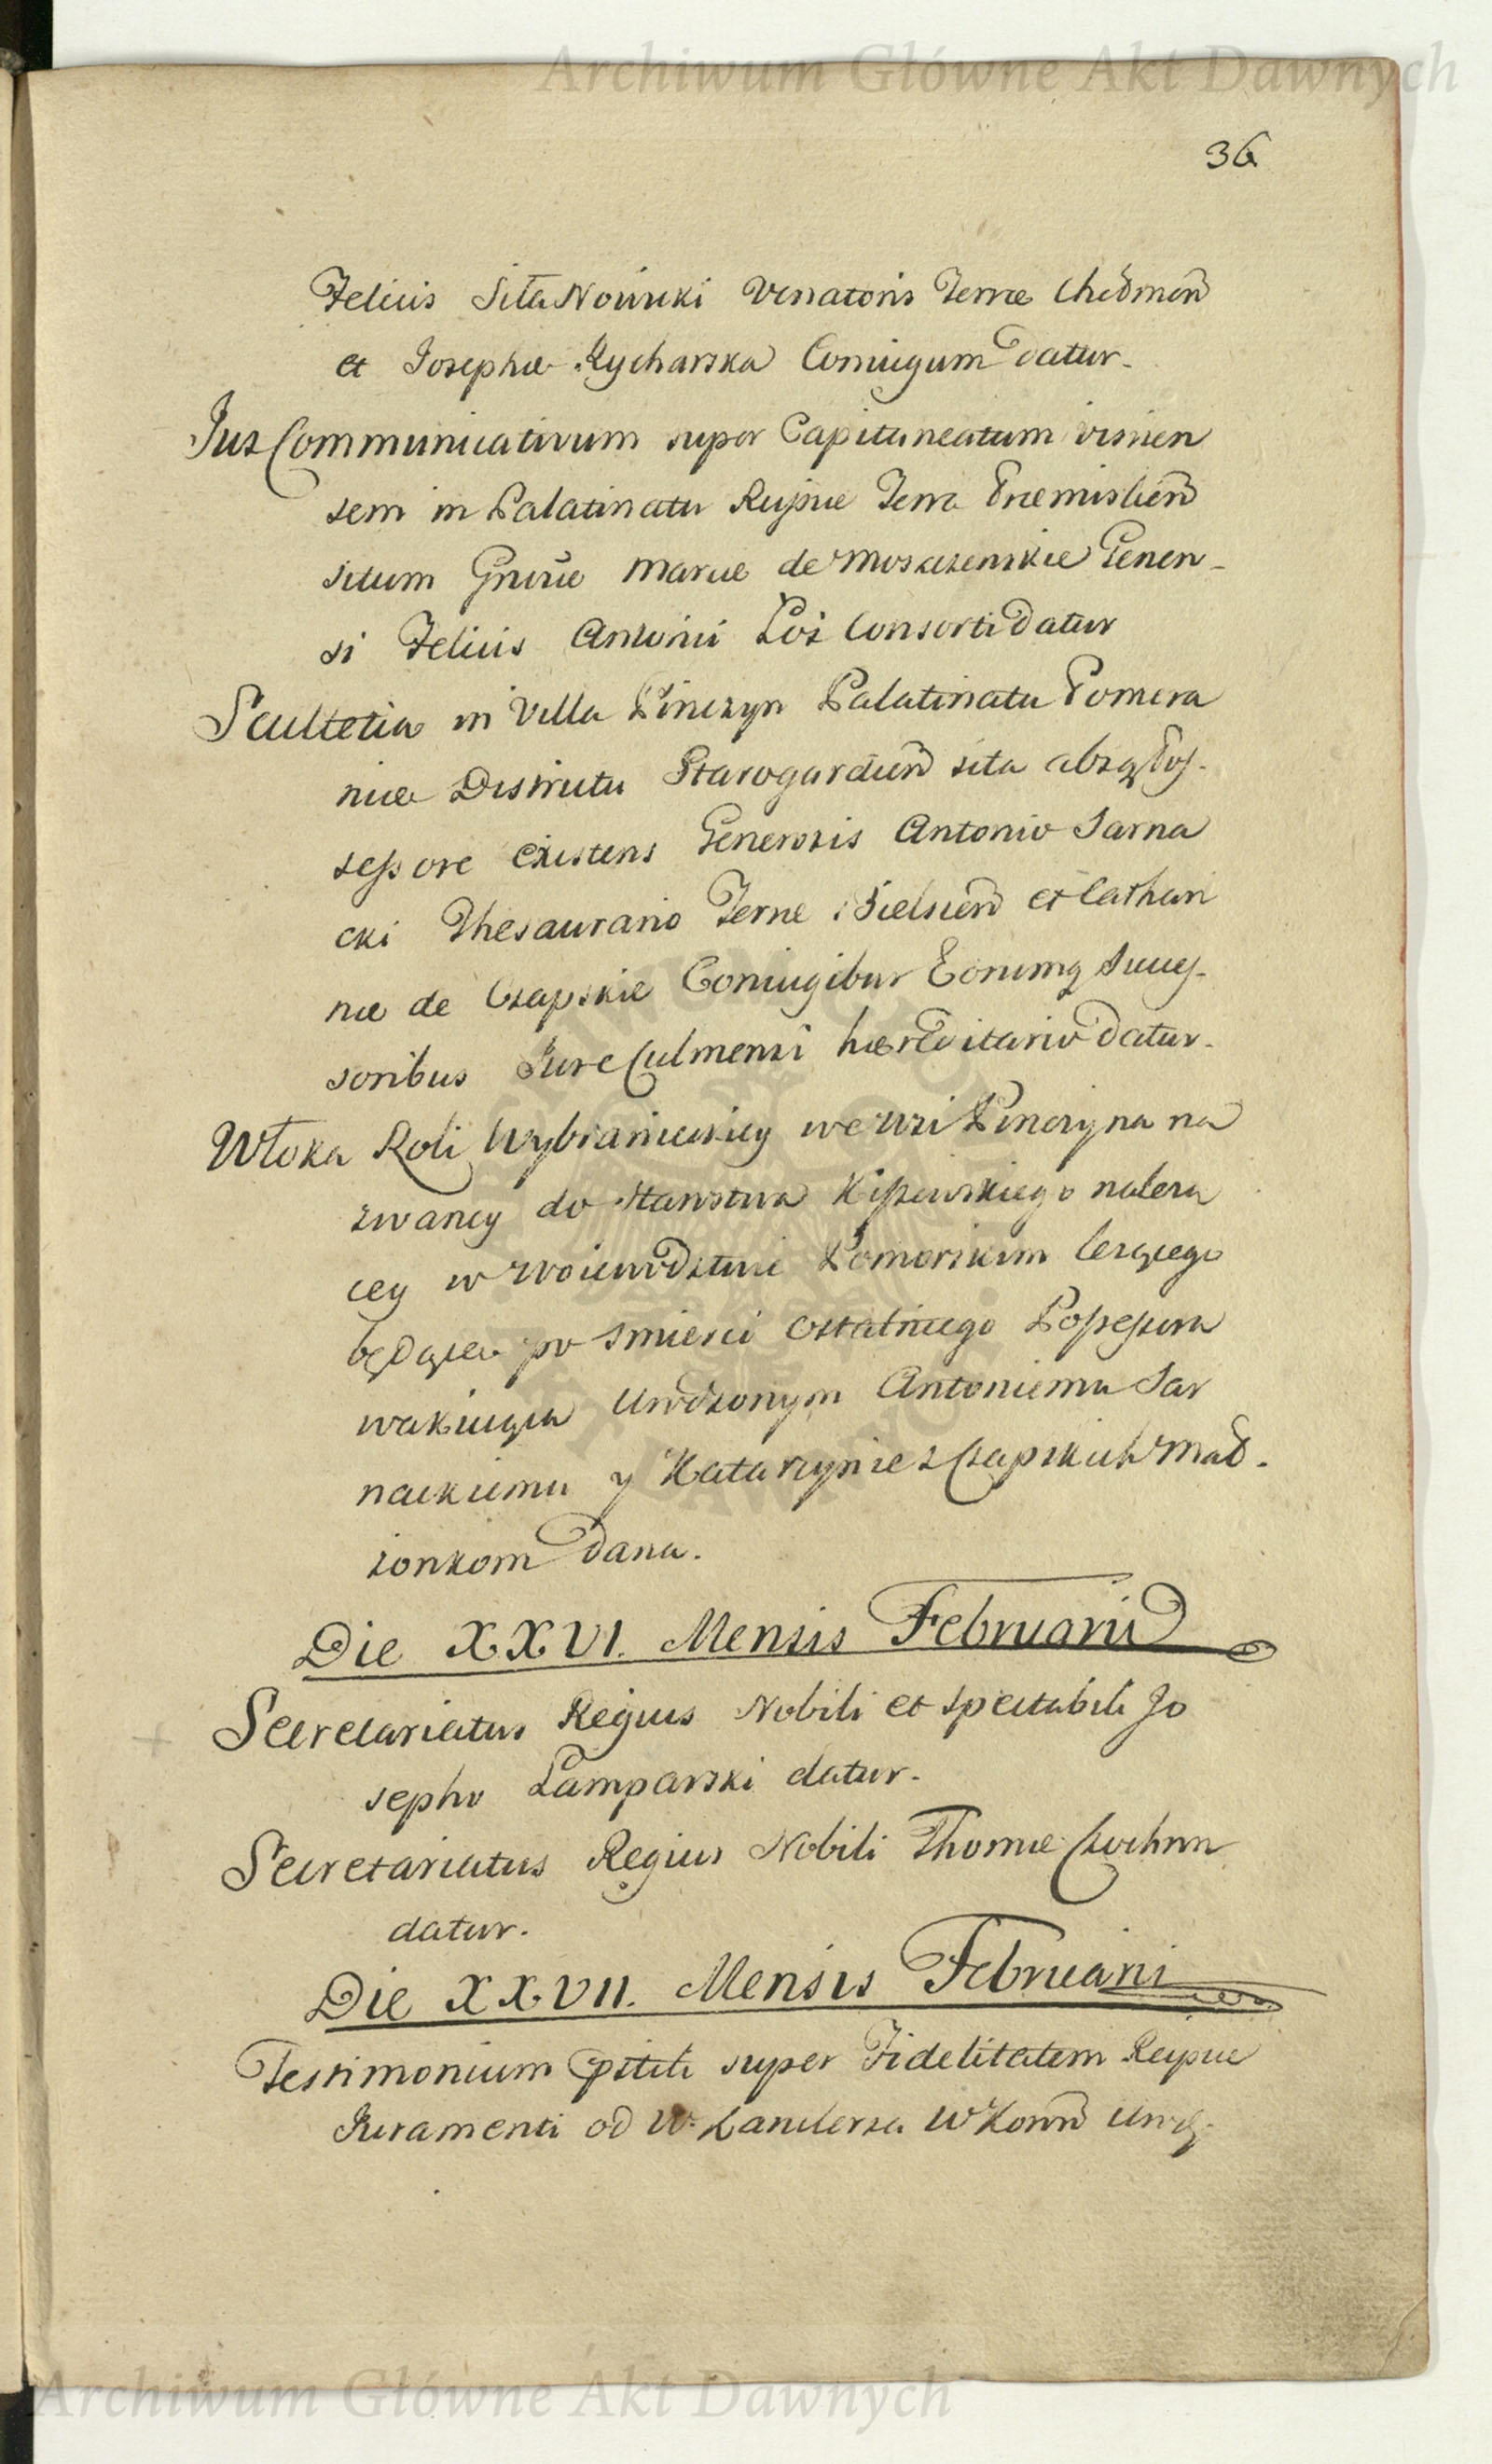 Archiwum Główne Akt Dawnych
36
Felicis Siła Nowicki Venatoris Terræ Chełmen̄
et Josephæ Rycharska Coniugum datur.
Jus Communicativum super Capitaneatum visnien
sem in Palatinatu Russiæ Terra Præmislien̄
situm Gnosæ Mariæ de Moszczenskie Genen-
si Felicis Antonii Łoś Consorti datur
Scultetia in Villa Pinczyn Palatinatu Pomera
niæ Districtu Starogardien̄ sita absq Pos-
sessore existens Generosis Antonio Sarna
cki Thesaurario Terræ Bielscen̄ et Cathari
næ de Czapskie Coniugibus Eorumq Succes-
soribus Jure Culmensi hæreditario datur.
Włoka Roli Wybranieckiey we Wsi Pinczyna na
zwaney do Starostwa Kiszewskiego należą
cey w Woiewodztwie Pomorskim leżącego
będąca po smierci ostatniego Possessora
wakuiąca Urodzonym Antoniemu Sar
nackiemu y Katarzynie z Czapskich Mał-
żonkom dana.
Die XXVI. Mensis Februarii
Secretariatus Regius Nobili et Spectabili Jo
sepho Lamparski datur.
Secretariatus Regius Nobili Thomæ
datur.
Die XXVII. Mensis Februarii
Testimonium pstiti super Fidelitatem Reipuæ
Juramenti od W. Kanclerza W Koron̄ Urodz.
Archiwum Główne Akt Dawnych